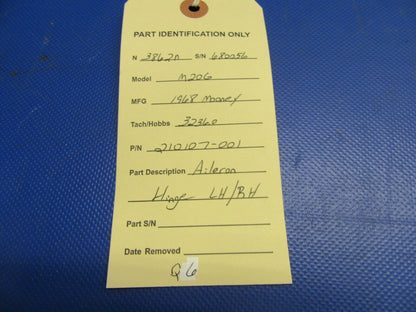 PART IDENTIFICATION ONLY
N 3862N S/N 680056
Model M20G
MFG 1968 Mooney
Tach/Hobbs 3236.0
P/N 210107-001
Part Description Aileron
Hinge LH/RH
Part S/N
Date Removed
Q6